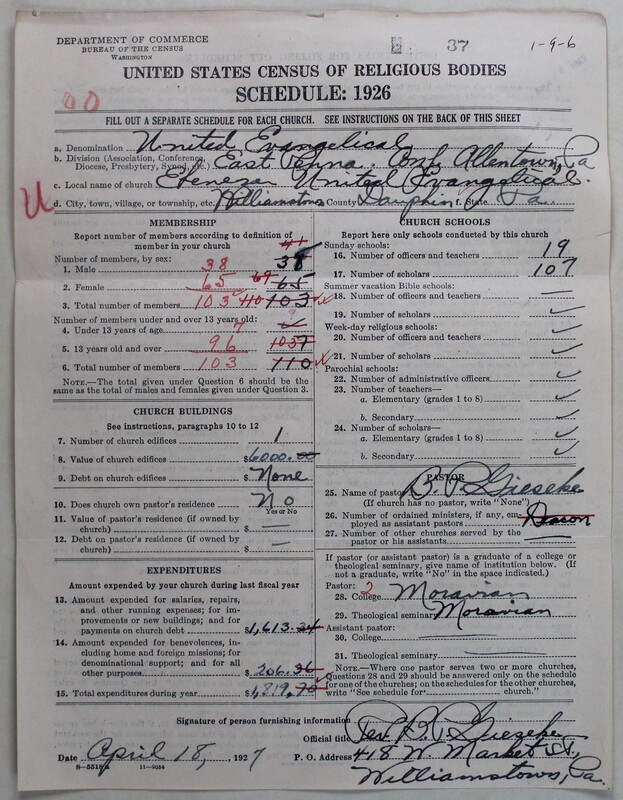 DEPARTMENT OF COMMERCE
BUREAU OF THE CENSUS
WASHINGTON
37
1-9-6
UNITED STATES CENSUS OF RELIGIOUS BODIES
SCHEDULE: 1926
00
FILL OUT A SEPARATE SCHEDULE FOR EACH CHURCH. SEE INSTRUCTIONS ON THE BACK OF THIS SHEET
a. Denomination United Evangelical
b. Division (Association, Conference, Diocese, Presbytery, Synod, etc.) East Penna. Conf. Allentown, Pa
c. Local name of church Ebenezer United Evangelical.
U
d. City, town, village, or township, etc. Williamstown County Dauphin f. State Pa.
MEMBERSHIP
Report number of members according to definition of
member in your church
Number of members, by sex: 41
1. Male 38 38
2. Female 65 69 65
3. Total number of members 103 110 103
Number of members under and over 13 years old:
4. Under 13 years of age 7
5. 13 years old and over 96 1037
6. Total number of members 103 110
NOTE.—The total given under Question 6 should be
the same as the total of males and females given under Question 3.
CHURCH BUILDINGS
See instructions, paragraphs 10 to 12
7. Number of church edifices 1
8. Value of church edifices $6000.00
9. Debt on church edifices $None
10. Does church own pastor's residence No
Yes or No
11. Value of pastor's residence (if owned by
church) $ —
12. Debt on pastor's residence (if owned by
church) $ —
EXPENDITURES
Amount expended by your church during last fiscal year
13. Amount expended for salaries, repairs,
and other running expenses; for im-
provements or new buildings; and for
payments on church debt $1,613.34
14. Amount expended for benevolences, in-
cluding home and foreign missions; for
denominational support; and for all
other purposes $206.36
15. Total expenditures during year $1,819.70
CHURCH SCHOOLS
Report here only schools conducted by this church
Sunday schools:
16. Number of officers and teachers 19
17. Number of scholars 107
Summer vacation Bible schools:
18. Number of officers and teachers —
19. Number of scholars
Week-day religious schools:
20. Number of officers and teachers
21. Number of scholars
Parochial schools:
22. Number of administrative officers
23. Number of teachers—
a. Elementary (grades 1 to 8)
b. Secondary
24. Number of scholars—
a. Elementary (grades 1 to 8)
b. Secondary
PASTOR
25. Name of pastor D. P. Gieseke
(If church has no pastor, write "None")
26. Number of ordained ministers, if any, em-
ployed as assistant pastors
27. Number of other churches served by the
pastor or his assistants —
If pastor (or assistant pastor) is a graduate of a college or
theological seminary, give name of institution below. (If
not a graduate, write "No" in the space indicated.)
Pastor: 2
28. College Moravian
29. Theological seminary Moravian
Assistant pastor:
30. College —
31. Theological seminary —
NOTE.—Where one pastor serves two or more churches,
Questions 28 and 29 should be answered only on the schedule
for one of the churches; on the schedules for the other churches,
write "See schedule for church."
Signature of person furnishing information Rev. D. P. Gieseke
Official title
Date April 18, 1927 P. O. Address 418 W. Market St.,
8—5518 11—9054 Williamstown, Pa.